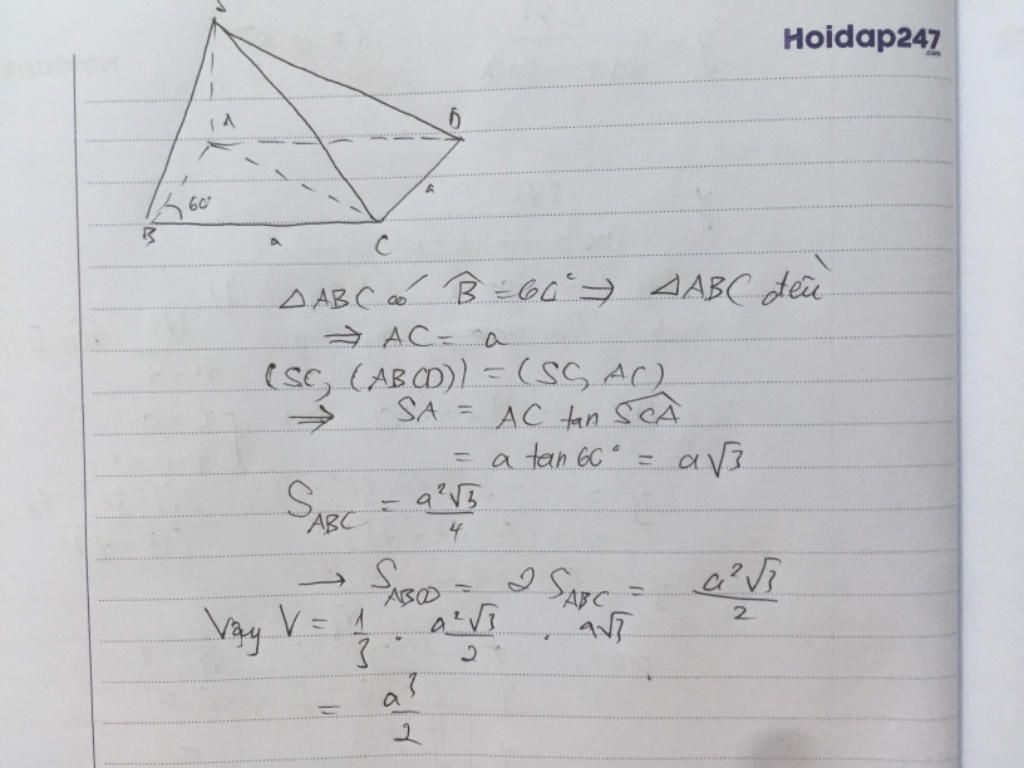 Hoidap247
.com
S
A
D
60°
a
B
a
C
△ABC có B̂ = 60° ⇒ △ABC đều
⇒ AC = a
(SC, (ABCD)) = (SC, AC)
⇒ SA = AC tan SCA
= a tan 60° = a√3
S_ABC = a²√3/4
→ S_ABCD = 2 S_ABC = a²√3/2
Vậy V = 1/3 . a²√3/2 . a√3
= a³/2